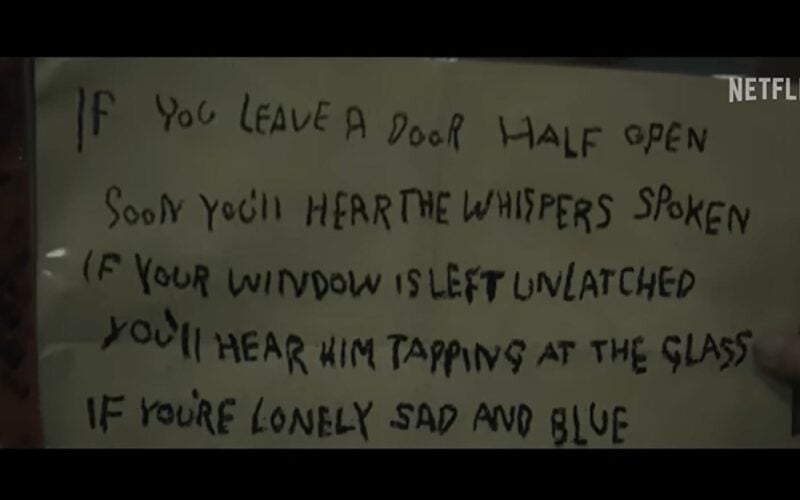 NETFLI
IF YOU LEAVE A DOOR HALF OPEN
SOON YOU'll HEAR THE WHISPERS SPOKEN
IF YOUR WINDOW IS LEFT UNLATCHED
YOU'll HEAR HIM TAPPING AT THE GLASS
IF YOU'RE LONELY SAD AND BLUE